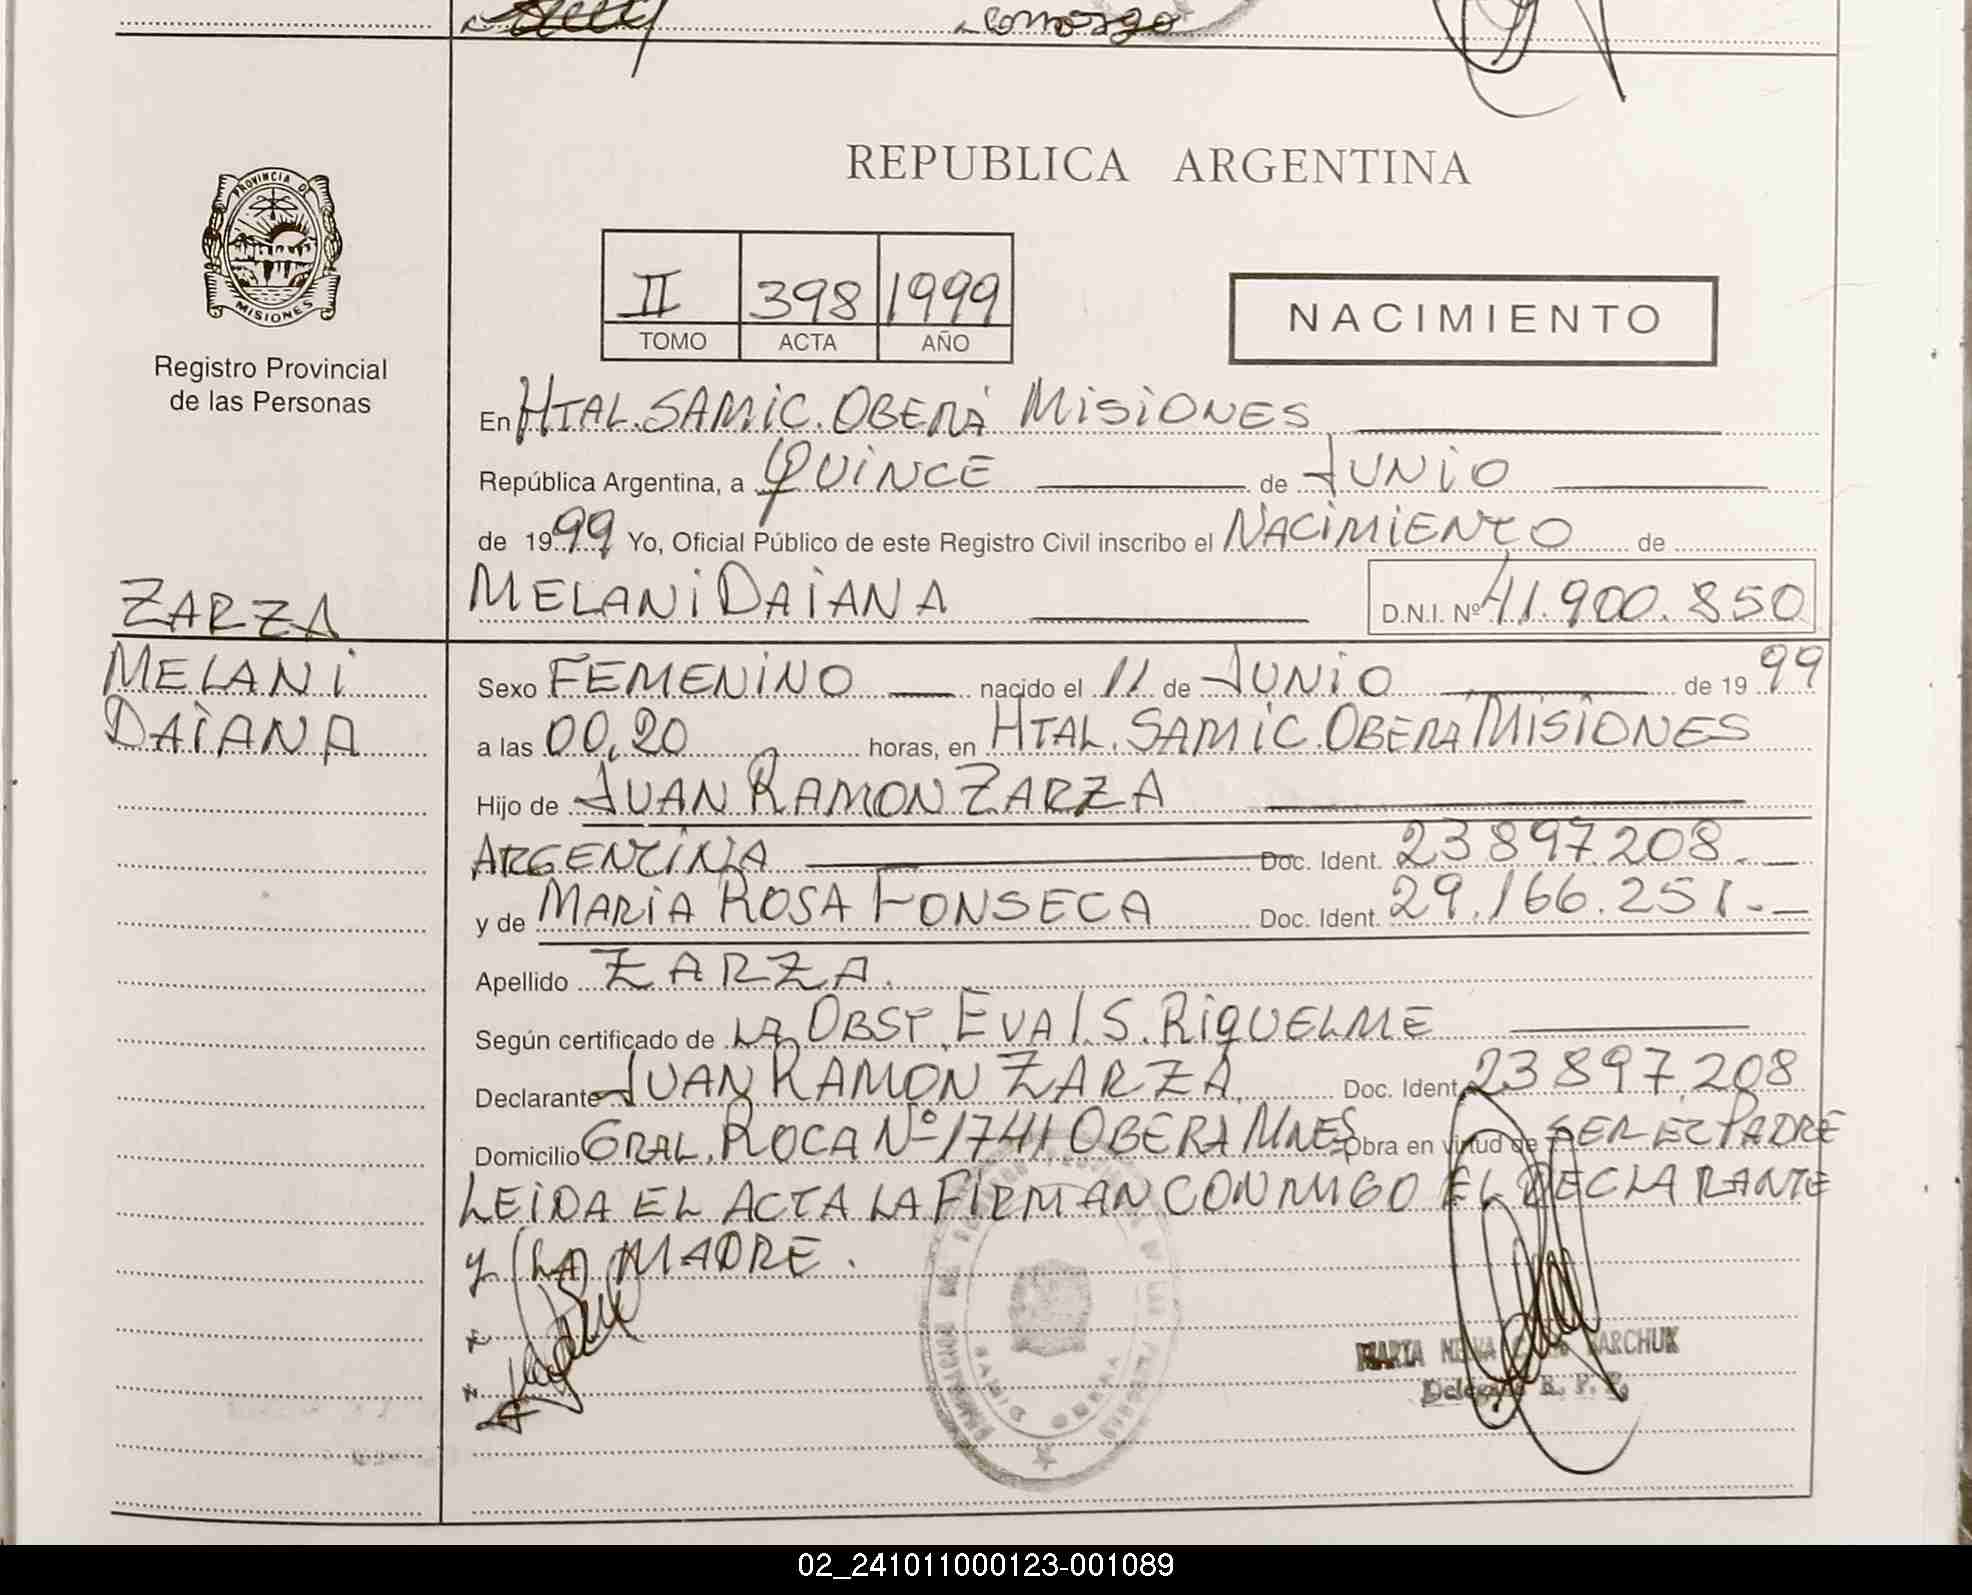 comargo
REPUBLICA ARGENTINA
PROVINCIA DE
MISIONES
Registro Provincial
de las Personas
II 398 1999
TOMO ACTA AÑO
NACIMIENTO
En HTAL. SAMIC. OBERÁ MISIONES
República Argentina, a QUINCE de JUNIO
de 1999 Yo, Oficial Público de este Registro Civil inscribo el NACIMIENTO de
MELANI DAIANA D.N.I. Nº 41.900.850
ZARZA
MELANI
DAIANA
Sexo FEMENINO nacido el 11 de JUNIO de 1999
a las 00,20 horas, en HTAL. SAMIC. OBERA MISIONES
Hijo de JUAN RAMON ZARZA
ARGENTINA Doc. Ident. 23897208.
y de MARIA ROSA FONSECA Doc. Ident. 29.166.251.
Apellido ZARZA.
Según certificado de LA OBST. EVA I. S. RIQUELME
Declarante JUAN RAMON ZARZA. Doc. Ident. 23897.208
Domicilio GRAL. ROCA Nº 1741 OBERA MNES Obra en virtud de SER EL PADRE
LEIDA EL ACTA LA FIRMAN CONMIGO EL DECLARANTE
Y LA MADRE.
MARTA ARCHUK
Delegada R. P. P.
02_241011000123-001089